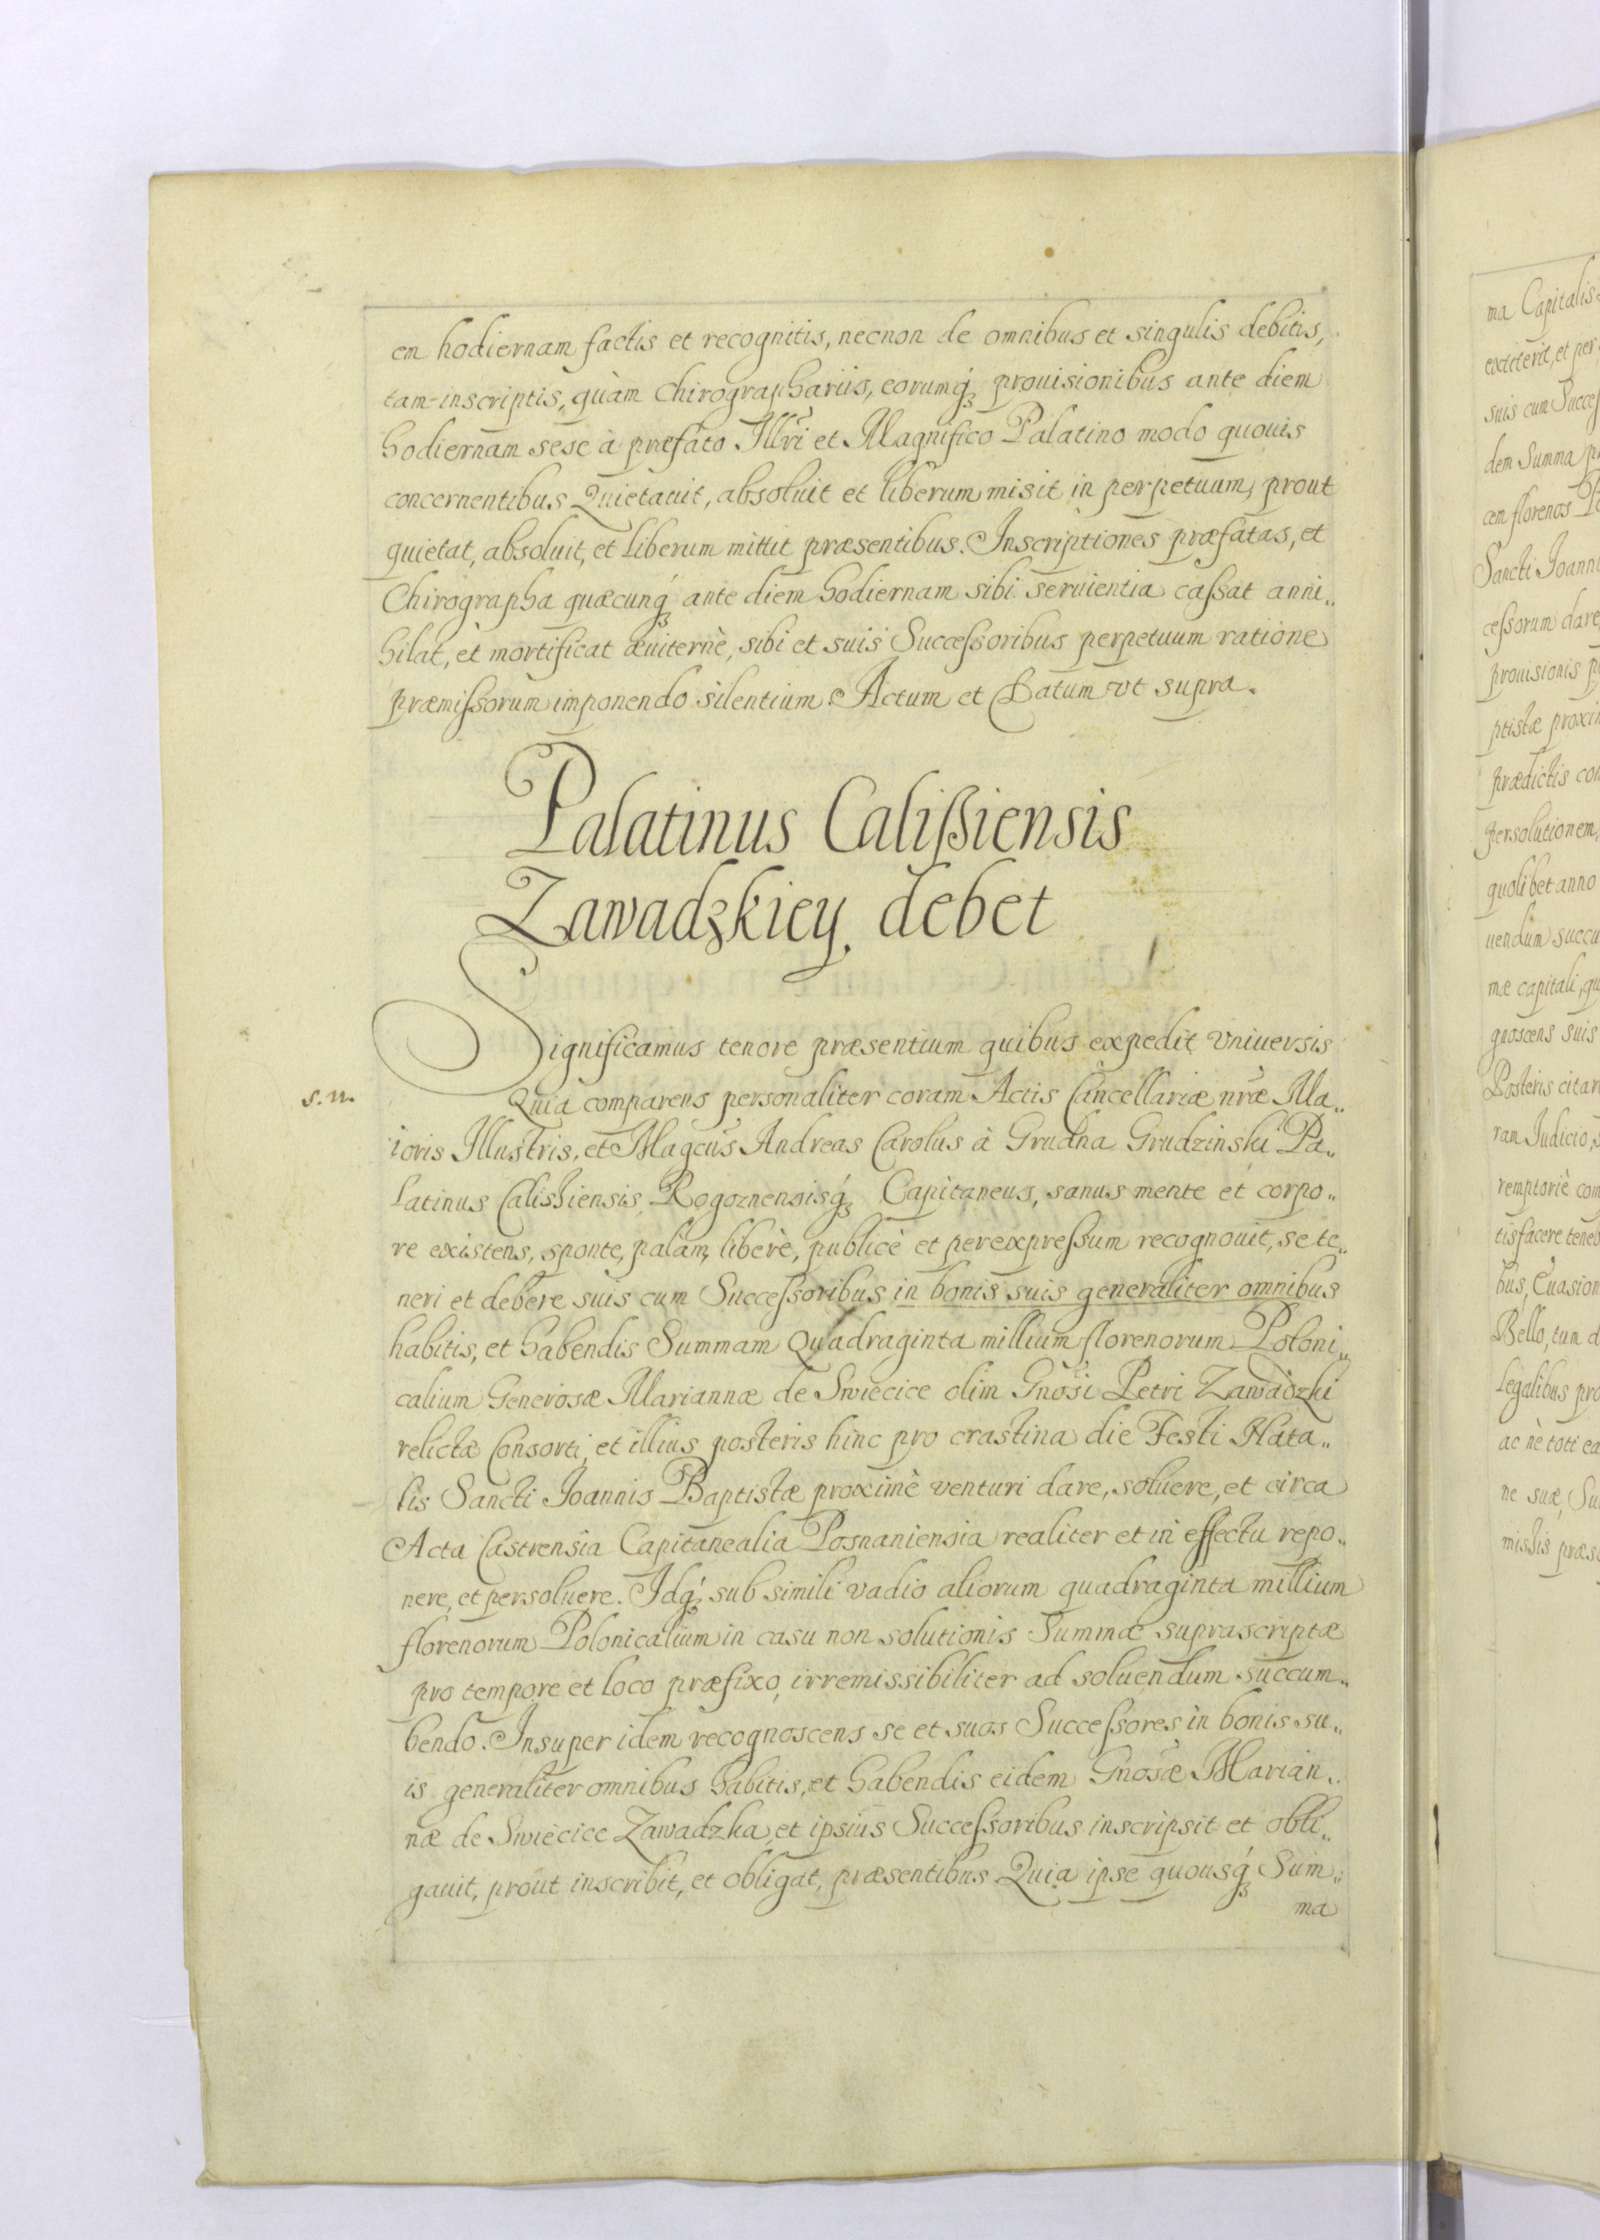 em hodiernam factis et recognitis, necnon de omnibus et singulis debitis,
tam inscriptis, quàm Chirographariis, eorumq́ʒ prouisionibus ante diem
hodiernam sese à præfato Illr̃i et Magnifico Palatino modo quouis
concernentibus Quietauit, absoluit et liberum misit in perpetuum, prout
quietat, absoluit, et liberum mittit præsentibus. Inscriptiones præfatas, et
Chirographa quæcunq́ʒ ante diem hodiernam sibi seruientia caſsat anni„
hilat, et mortificat æuiternè, sibi et suis Succeſsoribus perpetuum ratione
præmiſsorum imponendo silentium. Actum et Datum vt supra.
Palatinus Calißiensis
Zawadzkiey debet
Significamus tenore præsentium quibus expedit vniuersis
s. n.
Quia comparens personaliter coram Actis Cancellariæ nr̃æ Ma„
ioris Illustris, et Magcus Andreas Carolus à Grudna Grudzinski Pa„
latinus Calishiensis, Rogoznensisq́ʒ Capitaneus, sanus mente et corpo„
re existens, sponte, palam, liberè, publicè et per expreſsum recognouit, se te„
neri et debere suis cum Succeſsoribus in bonis suis generaliter omnibus
habitis, et habendis Summam Quadraginta millium florenorum Poloni„
calium Generosæ Mariannæ de Swiecice olim Gnõsi Petri Zawadzki
relictæ Consorti, et illius posteris hinc pro crastina die Festi Nata„
lis Sancti Joannis Baptistæ proximè venturi dare, soluere, et circa
Acta Castrensia Capitanealia Posnaniensia realiter et in effectu repo„
nere, et persoluere. Idq́ʒ sub simili vadio aliorum quadraginta millium
florenorum Polonicalium in casu non solutionis Summæ suprascriptæ
pro tempore et loco præfixo, irremissibiliter ad soluendum succum„
bendo. Insuper idem recognoscens se et suos Succeſsores in bonis su„
is generaliter omnibus habitis, et habendis eidem Gnõsæ Marian„
næ de Swiecice Zawadzka, et ipsius Succeſsoribus inscripsit et obli„
gauit, prout inscribit, et obligat, præsentibus Quia ipse quousq́ʒ Sum„
ma
ma Capitalis
extiterit, et per
suis cum Succeſ
dem Summa
cem florenos
Sancti Joanni
ceſsorum dare
prouisionis
ptistæ proxi
prædictis con
persolutionem,
quolibet anno
uendum succu
mæ capitali, qu
gnoscens suis
Posteris citar
ram Iudicio,
remptoriè com
tisfacere teneb
bus, Euasion
Bello, tum d
legalibus pro
ac ne toti ea
ne suæ, Su
missis præs